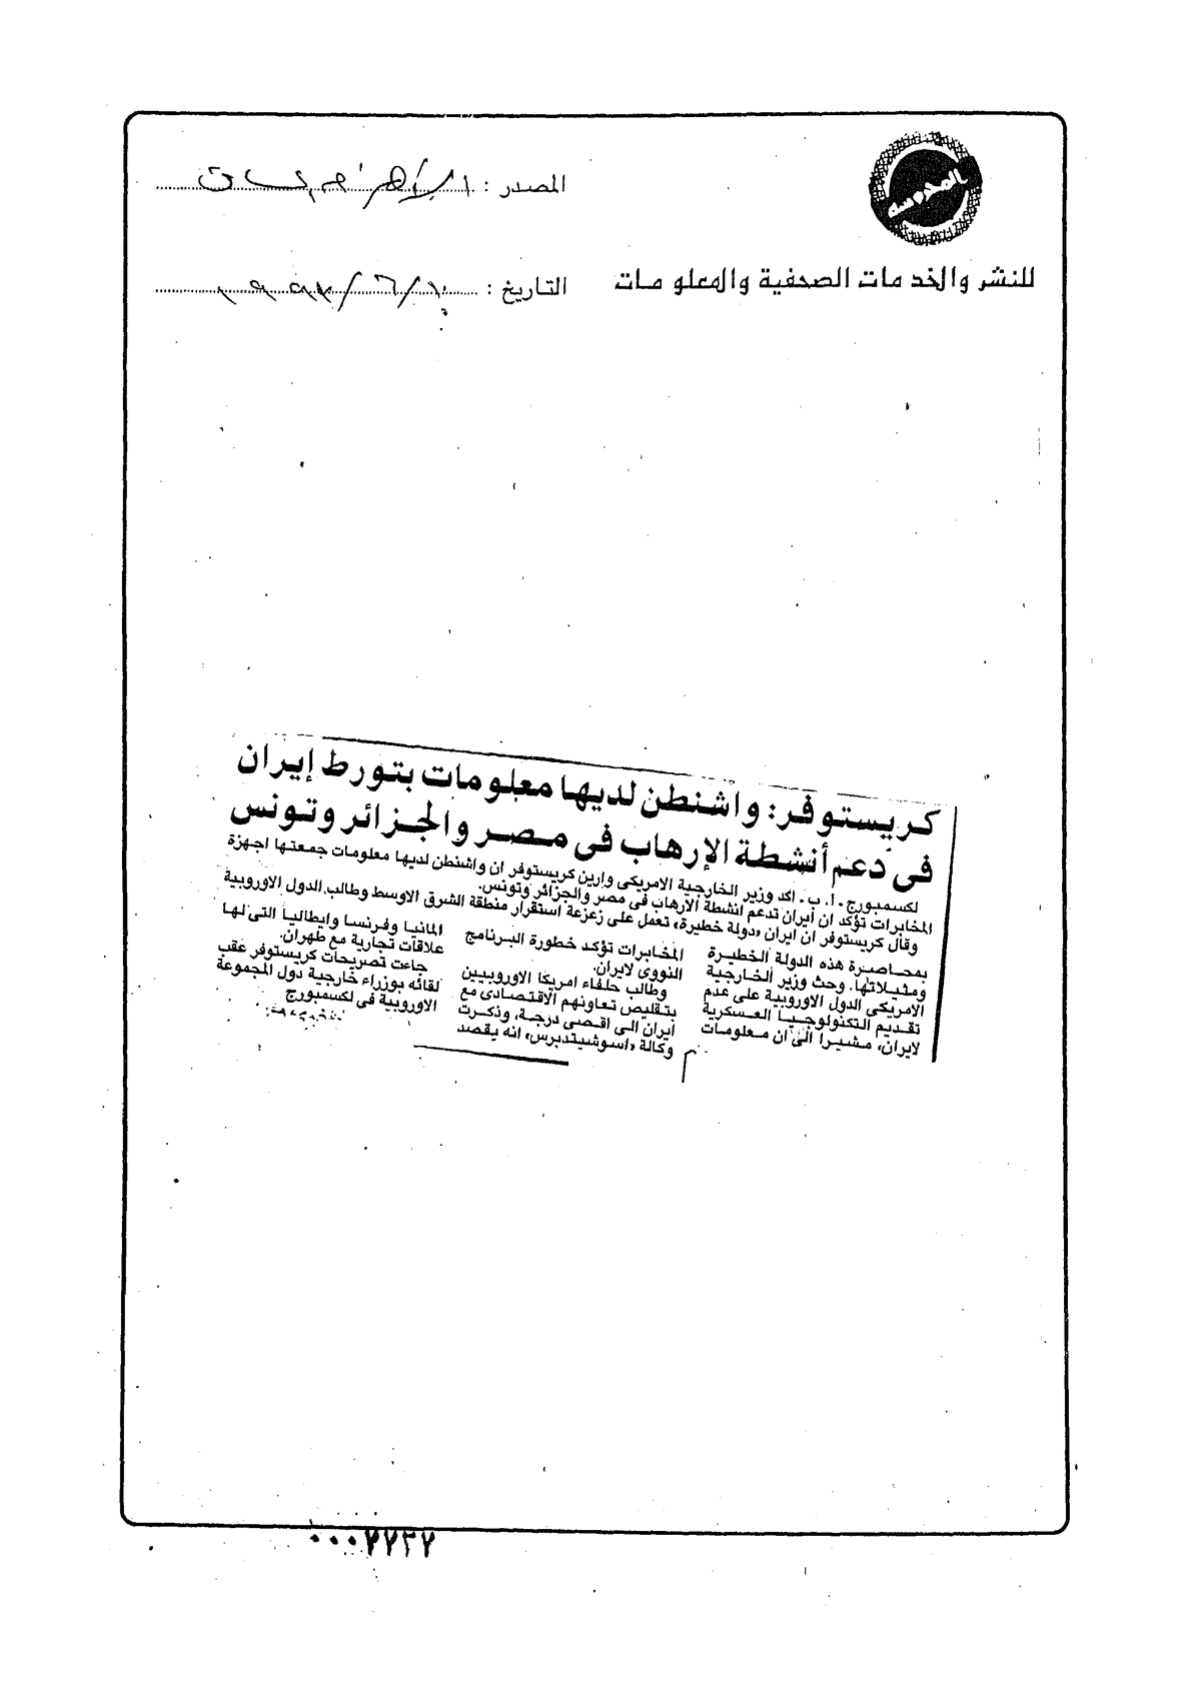 المحروسة
للنشر والخدمات الصحفية والمعلومات
المصدر : الأهرام
التاريخ : ١٩٩٣/٦/١٠
كريستوفر: واشنطن لديها معلومات بتورط إيران
فى دعم أنشطة الإرهاب فى مصر والجزائر وتونس
لكسمبورج - ا. ب - اكد وزير الخارجية الامريكى وارين كريستوفر ان واشنطن لديها معلومات جمعتها اجهزة
المخابرات تؤكد ان ايران تدعم انشطة الارهاب فى مصر والجزائر وتونس.
وقال كريستوفر ان ايران «دولة خطيرة» تعمل على زعزعة استقرار منطقة الشرق الاوسط وطالب الدول الاوروبية
بمحاصرة هذه الدولة الخطيرة
ومثيلاتها. وحث وزير الخارجية
الامريكى الدول الاوروبية على عدم
تقديم التكنولوجيا العسكرية
لايران، مشيرا الى ان معلومات
المخابرات تؤكد خطورة البرنامج
النووى لايران.
وطالب حلفاء امريكا الاوروبيين
بتقليص تعاونهم الاقتصادى مع
ايران الى اقصى درجة، وذكرت
وكالة «اسوشيتدبرس» انه يقصد
المانيا وفرنسا وايطاليا التى لها
علاقات تجارية مع طهران.
جاءت تصريحات كريستوفر عقب
لقائه بوزراء خارجية دول المجموعة
الاوروبية فى لكسمبورج